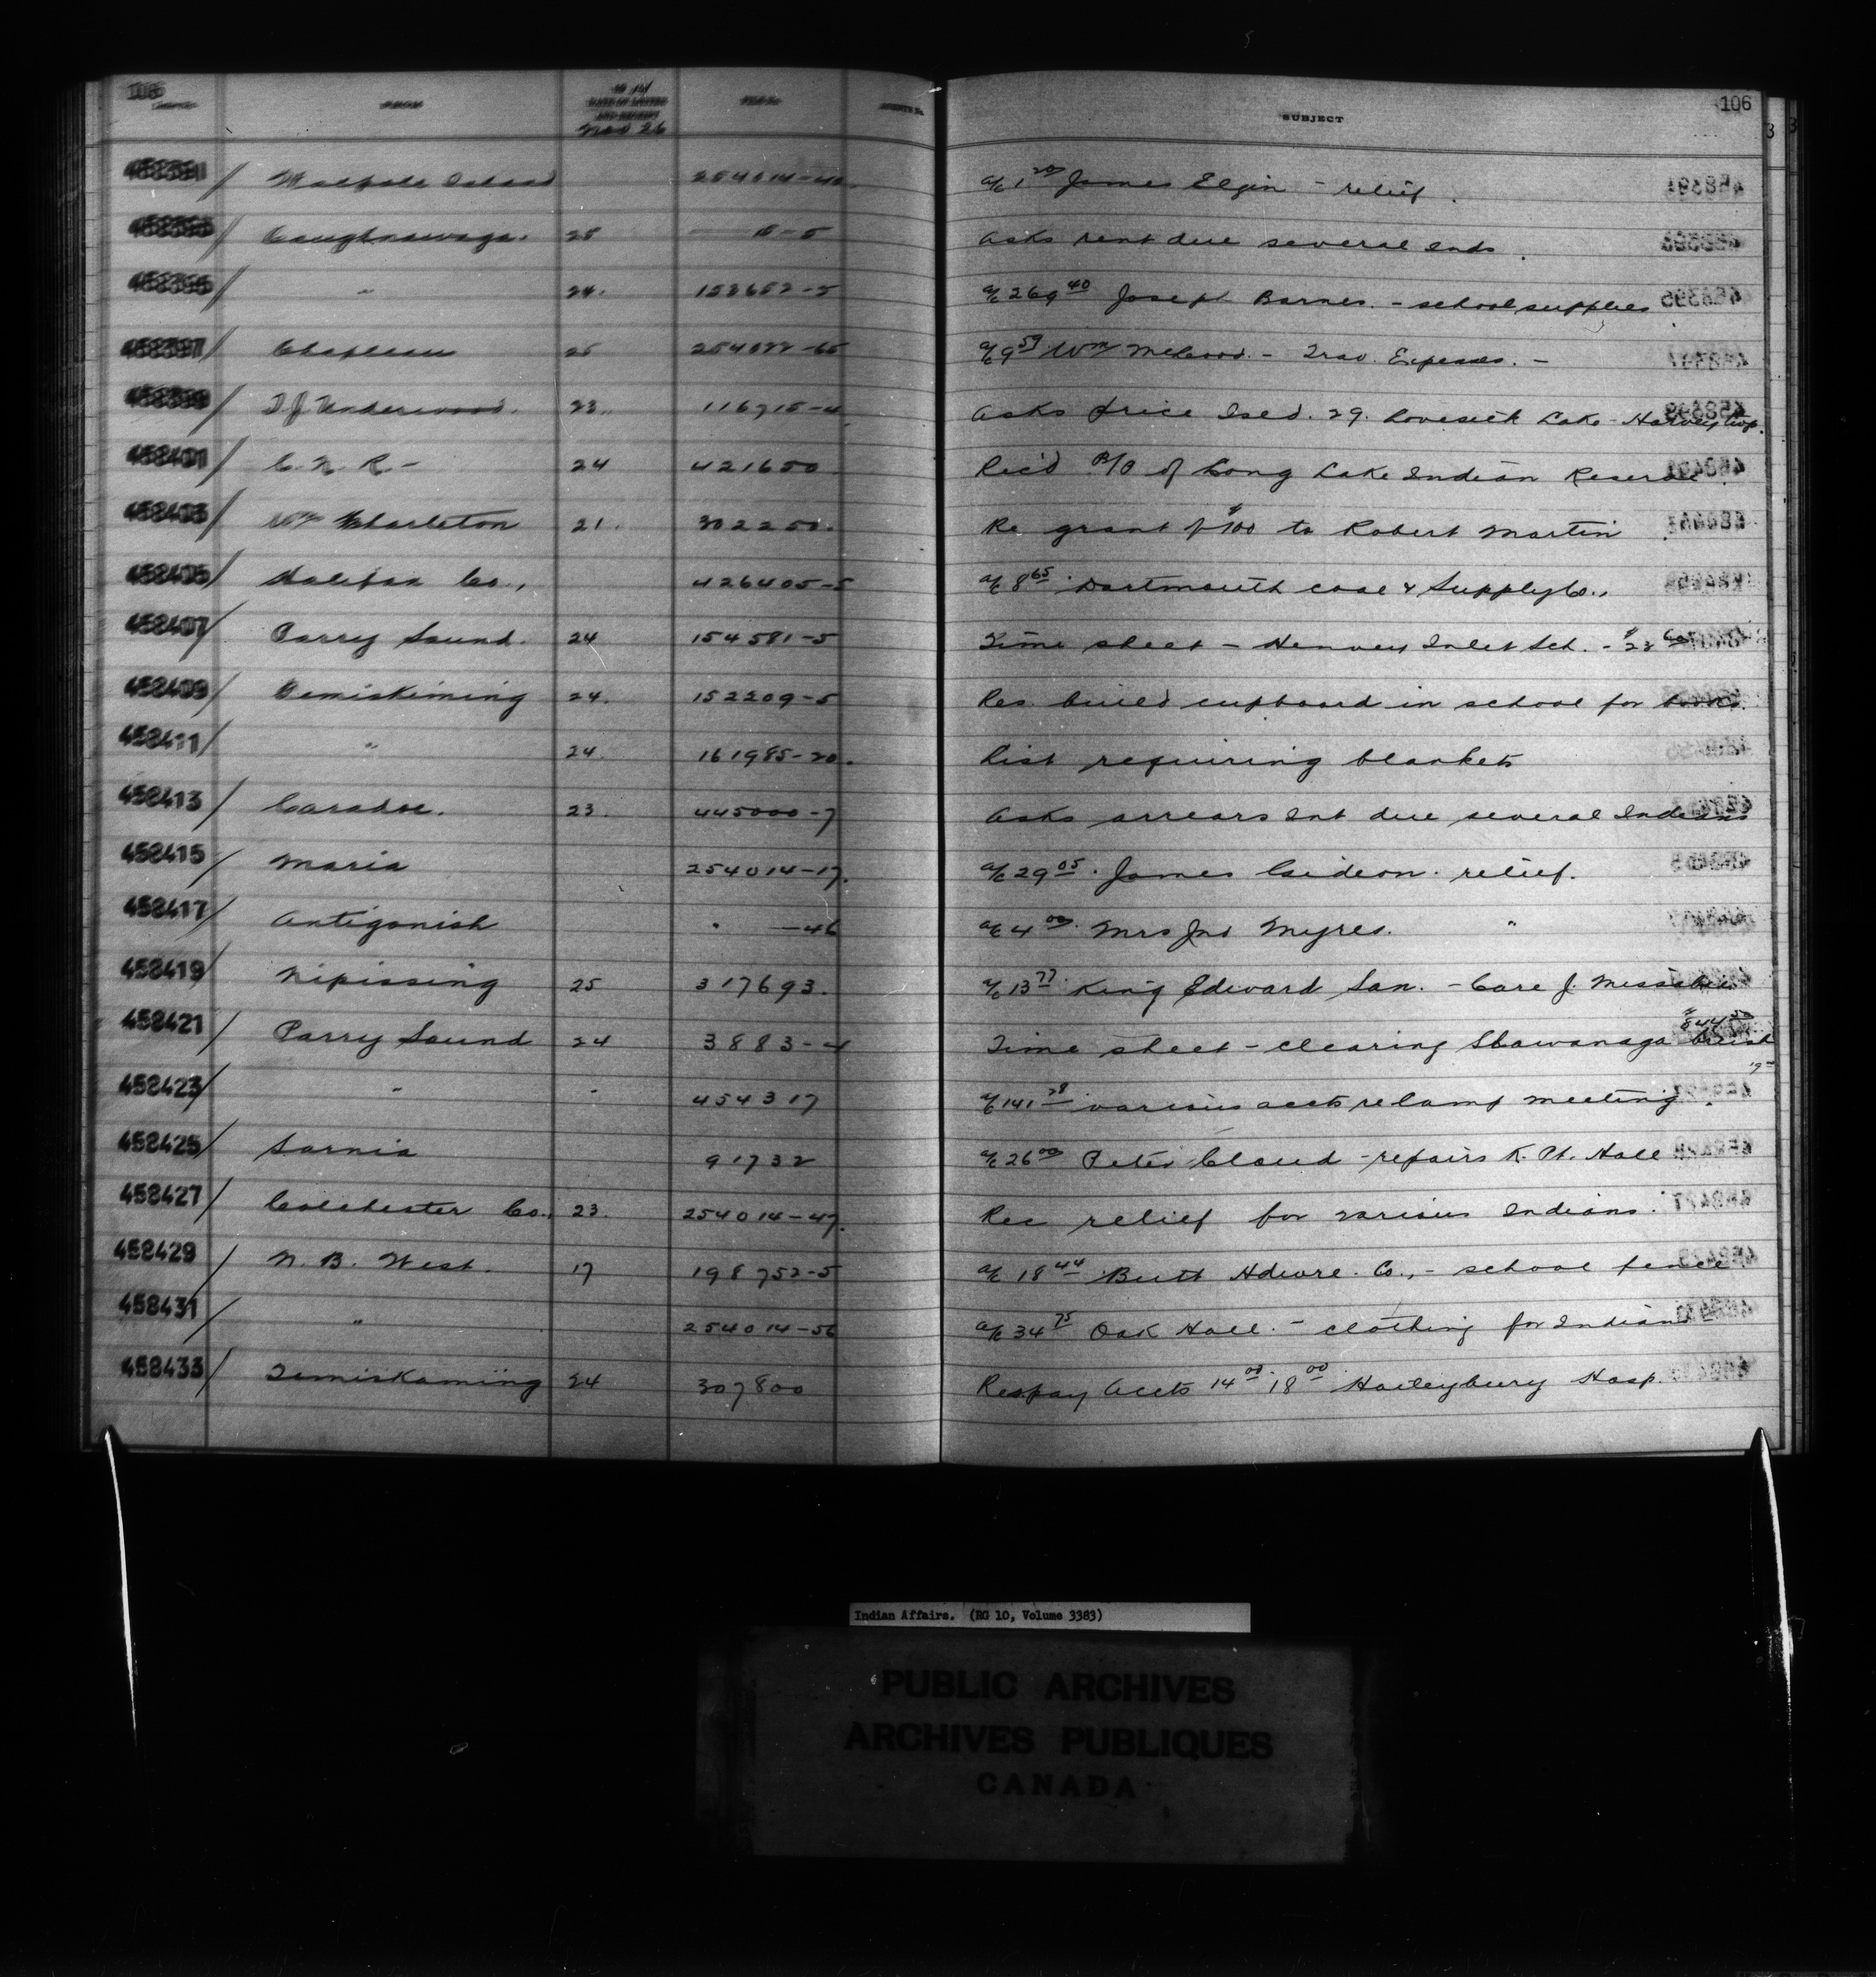 106 FROM 1914 DATE OF LETTER AND RECEIPT Nov 26 FILE No. AGENT'S No. SUBJECT 106
458391 / Walpole Island 254014-40 a/c 1 20 James Elgin - relief.
458393 / Caughnawaga. 25 -5 Asks rent due several Inds.
458395 / " 24. 153652-5 a/c 269 40 Joseph Barnes. - school supplies
458397 / Chapleau 25 254022-65 a/c 9 59 Wm McLeod. - Trav. Expenses. -
458399 / T.J. Underwood. 23. 116715-4 Asks price Isld. 29. Lovesick Lake - Harvey twp.
458401 / C. N. R - 24 421650 Rec'd B/P of Long Lake Indian Reserve.
458403 / Wm Charleton 21. 302250. Re grant of $100 to Robert Martin.
458405 / Halifax Co., 426405-5 a/c 8 65 Dartmouth coal & Supply Co.,
458407 / Parry Sound. 24 154581-5 Time sheet - Henvey Inlet Sch. - $23
458409 / Temiskiming 24. 152209-5 Res. build cupboard in school for books.
458411 / " 24. 161985-20. List requiring blankets
458413 / Caradoc. 23. 445000-7 Asks arrears Int due several Indians
458415 / Maria 254014-17. a/c 29 05. James Gideon. relief.
458417 / Antigonish " -46 a/c 4 00. Mrs Jno Myres. "
458419 / Nipissing 25 317693. a/c 13 77 King Edward San. - Care J.
458421 / Parry Sound 24 3883-4 Time sheet - clearing Shawanaga $844 50
458423 / " " 454317 a/c 141 28 various accts re camp meeting.
458425 / Sarnia 91732 a/c 26 00 Peter Cloud - repairs K. Pt. Hall
458427 / Colchester Co., 23. 254014-47. Rec relief for various Indians.
458429 / N. B. West. 17 198752-5 a/c 18 44 Butt Hdwre. Co., - school fence
458431 / " 254014-56 a/c 34 75 Oak Hall. - clothing for Indians
458433 / Temiskaming 24 307800 Res pay accts 14 00. 18 00 Haileybury Hosp.
Indian Affairs. (RG 10, Volume 3383)
PUBLIC ARCHIVES
ARCHIVES PUBLIQUES
CANADA